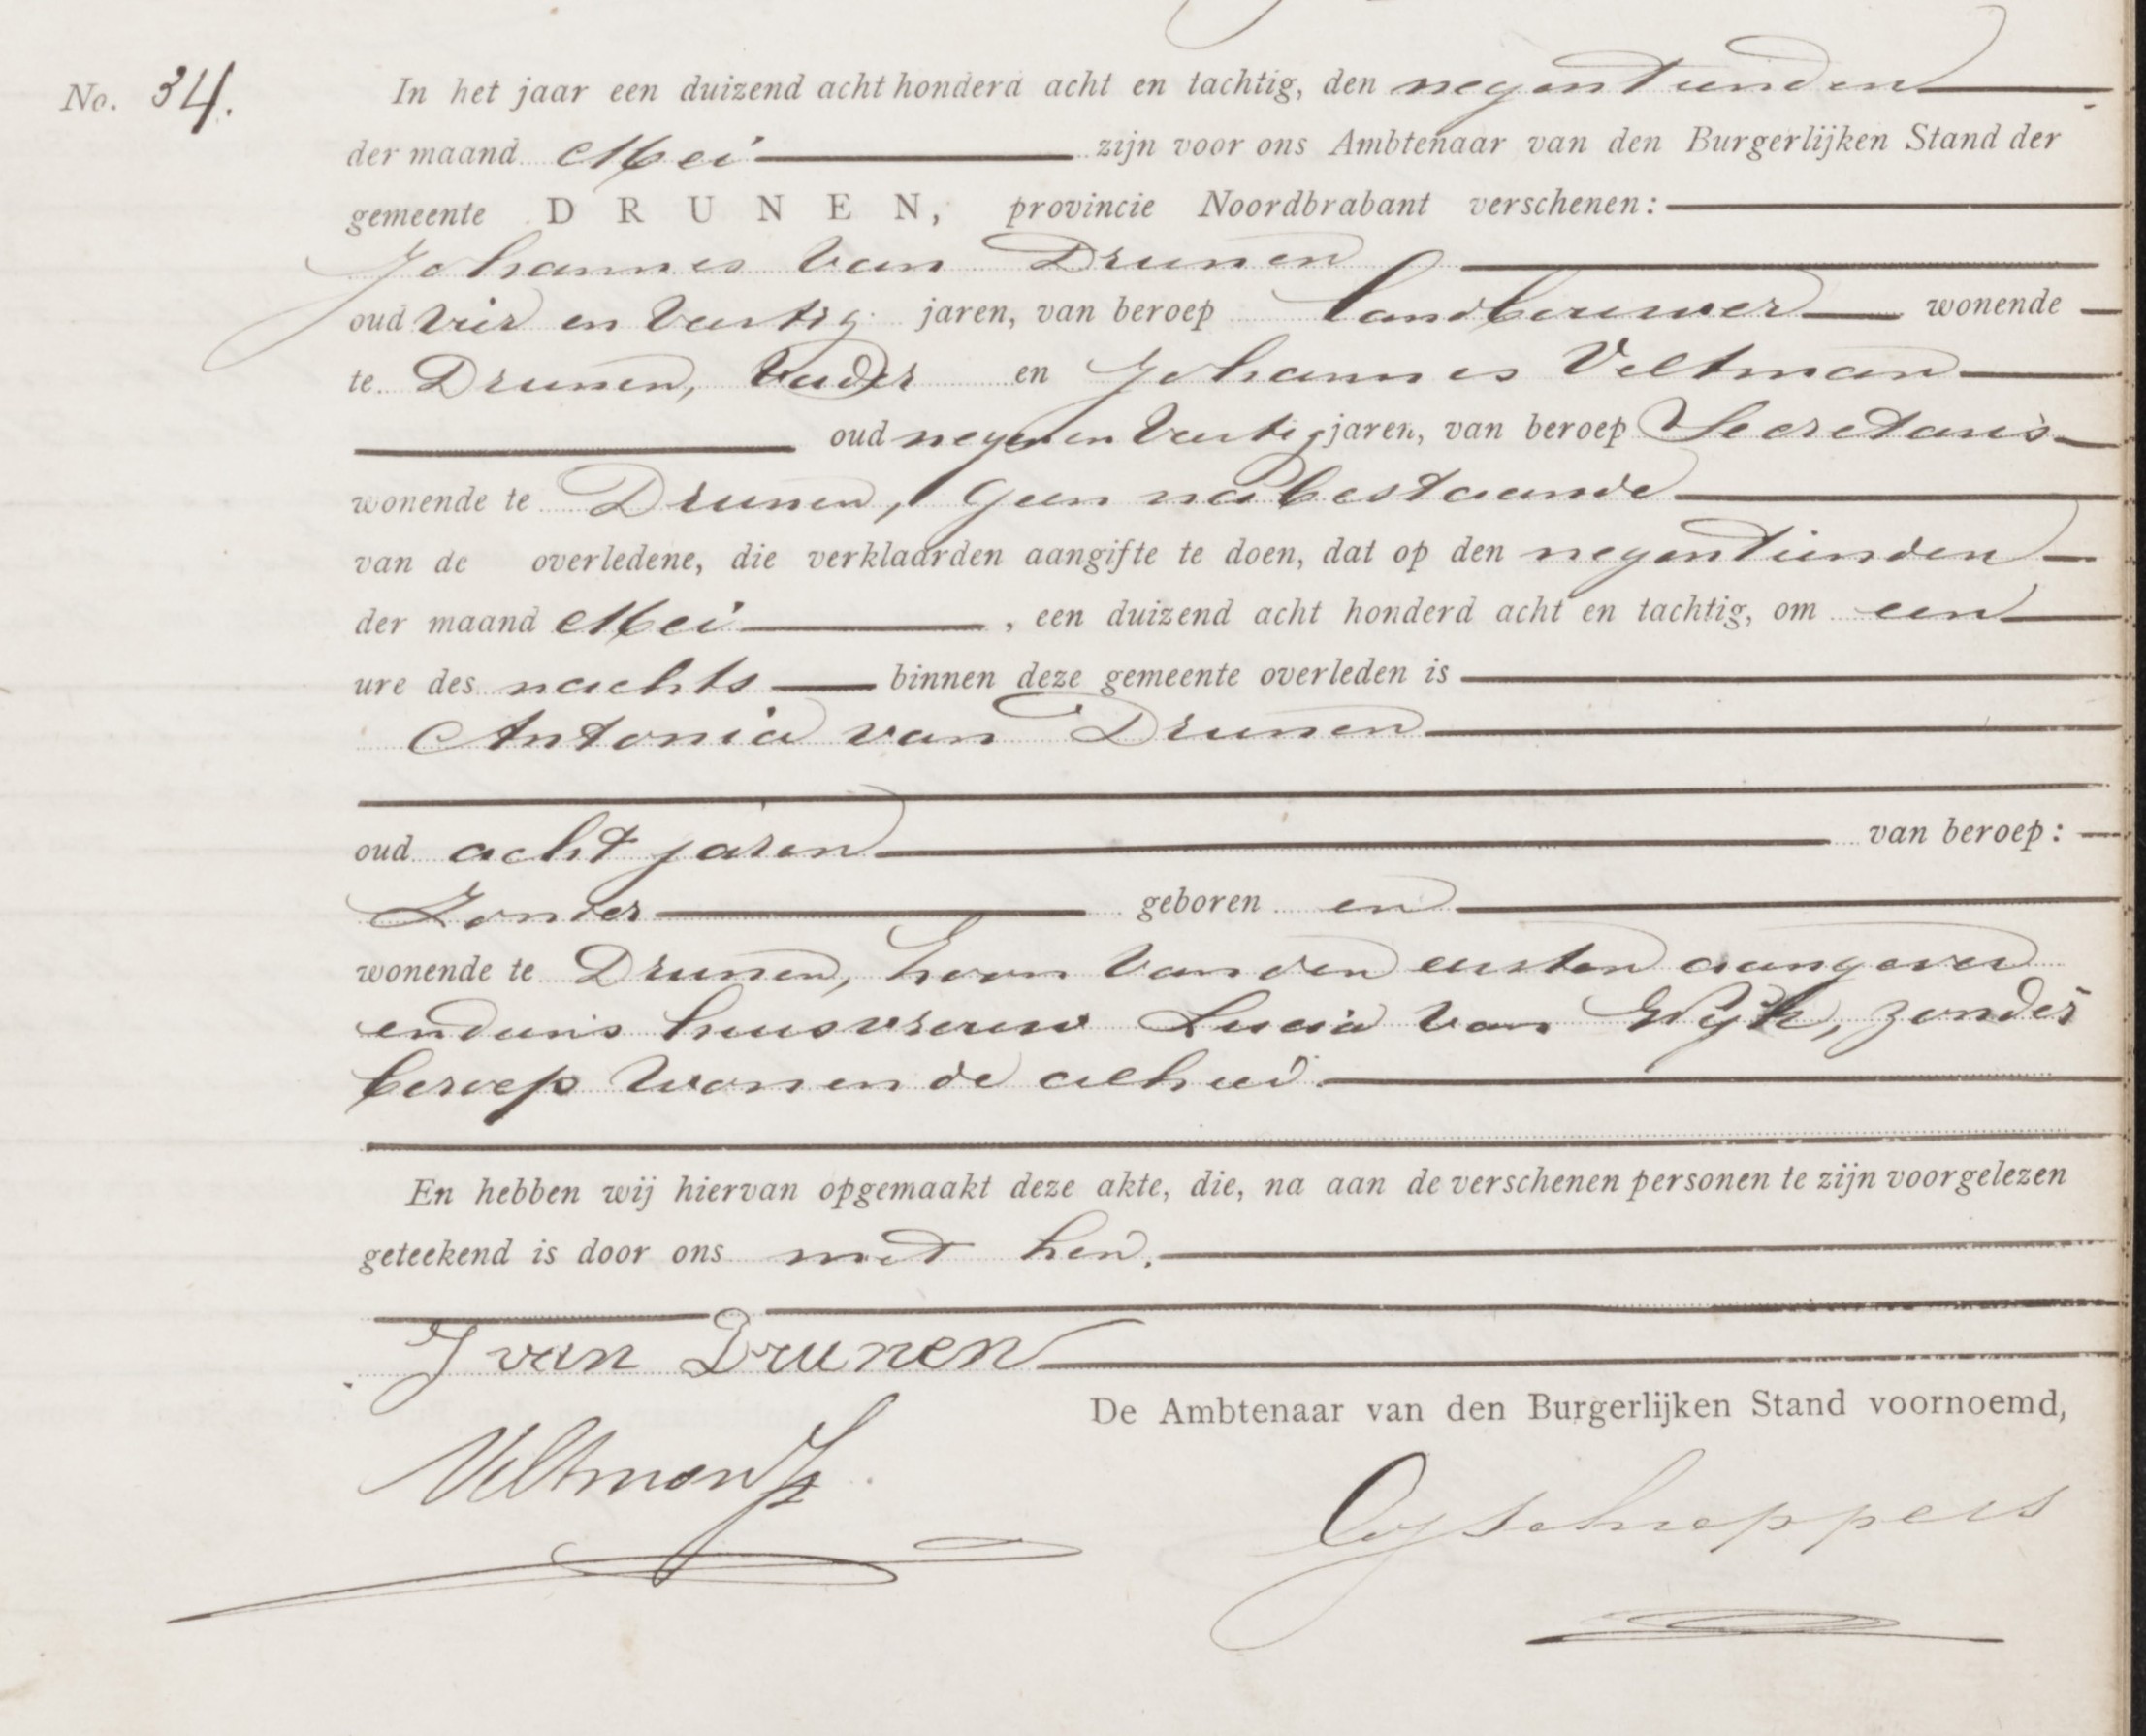 No. 34.
In het jaar een duizend acht honderd acht en tachtig, den negentienden
der maand Mei zijn voor ons Ambtenaar van den Burgerlijken Stand der
gemeente DRUNEN, provincie Noordbrabant verschenen:
Johannes van Drunen
oud vier en veertig jaren, van beroep landbouwer wonende
te Drunen, vader en Johannes Veltman
oud negen en veertig jaren, van beroep Secretaris
wonende te Drunen, geen nabestaande
van de overledene, die verklaarden aangifte te doen, dat op den negentienden
der maand Mei, een duizend acht honderd acht en tachtig, om een
ure des nachts binnen deze gemeente overleden is
Antonia van Drunen
oud acht jaren van beroep:
Zonder geboren en
wonende te Drunen, van den eersten aangever
en diens huisvrouw Lucia van Wijk, zonder
beroep wonende alhier.
En hebben wij hiervan opgemaakt deze akte, die, na aan de verschenen personen te zijn voorgelezen
geteekend is door ons met hen.
J van Drunen
De Ambtenaar van den Burgerlijken Stand voornoemd,
Veltman